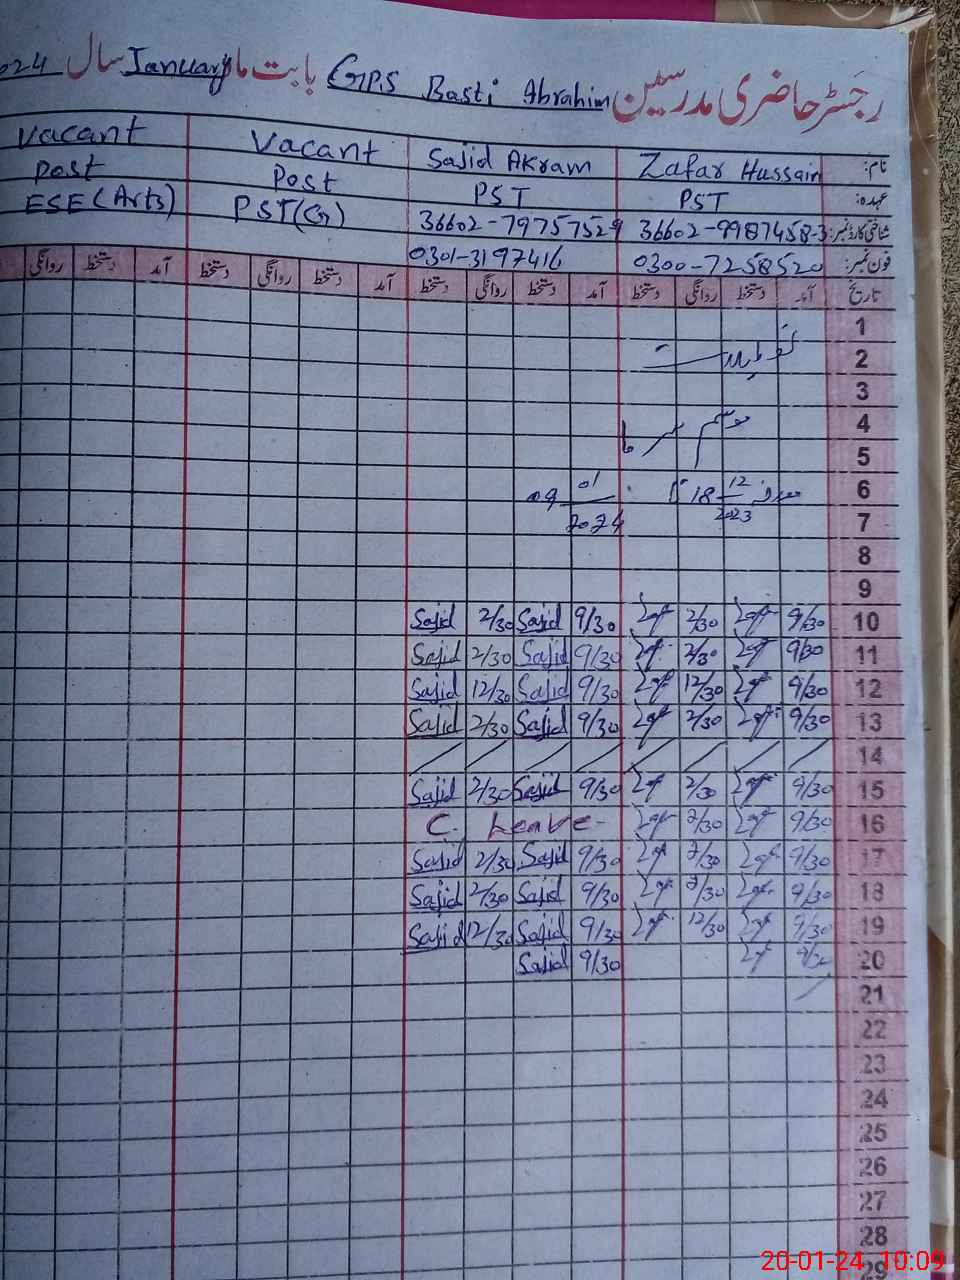 رجسٹر حاضری مدرسین GPS Basti Abrahim بابت ماہ January سال 2024
نام: Zafar Hussain Sajid Akram Vacant Vacant
عہدہ: PST PST Post Post
شناختی کارڈ نمبر: 36602-9987458-3 36602-7975752-9 PST(G) ESE (Arts)
فون نمبر: 0300-7258520 0301-3197416
تاریخ آمد دستخط روانگی دستخط آمد دستخط روانگی دستخط آمد دستخط روانگی دستخط آمد دستخط روانگی
1
2 تعطیلات
3
4 موسم سرما
5
6 مورخہ 18 12 تا 09 01
7 2023 2024
8
9
10 9/30 Zaf 2/30 Zaf 9/30 Sajid 2/30 Sajid
11 9/30 Zaf 2/30 Zaf 9/30 Sajid 2/30 Sajid
12 9/30 Zaf 12/30 Zaf 9/30 Sajid 12/30 Sajid
13 9/30 Zaf 2/30 Zaf 9/30 Sajid 2/30 Sajid
14
15 9/30 Zaf 2/30 Zaf 9/30 Sajid 2/30 Sajid
16 9/30 Zaf 2/30 Zaf C. Leave-
17 9/30 Zaf 2/30 Zaf 9/30 Sajid 2/30 Sajid
18 9/30 Zaf 2/30 Zaf 9/30 Sajid 2/30 Sajid
19 9/30 Zaf 12/30 Zaf 9/30 Sajid 12/30 Sajid
20 9/30 Zaf 9/30 Sajid
21
22
23
24
25
26
27
28
29
20-01-24 10:09